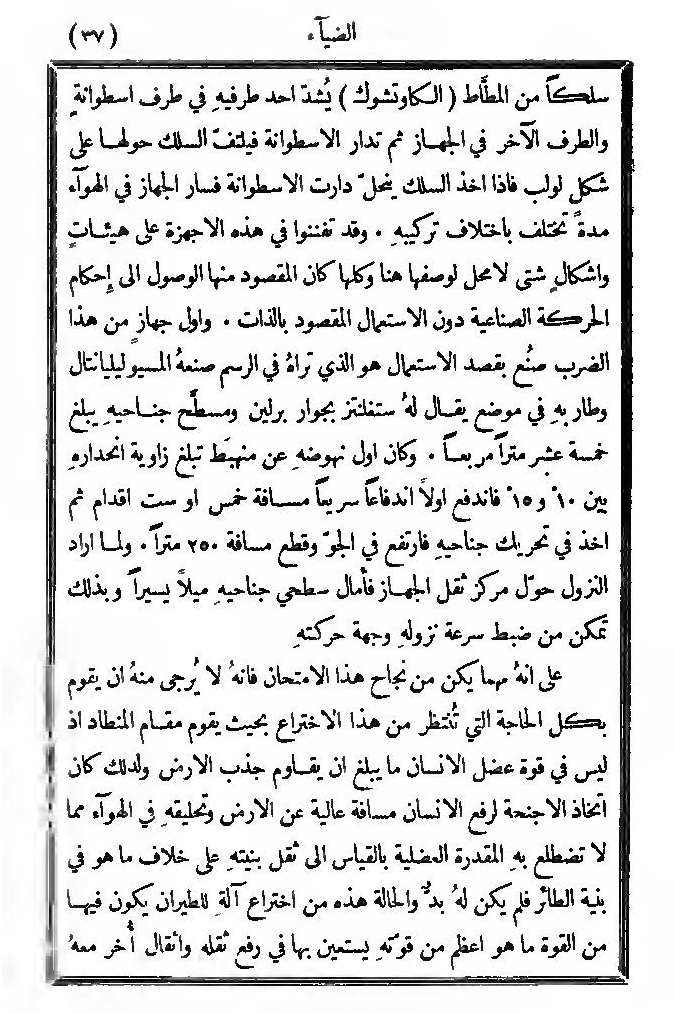 الضيآء (٣٧)
سلكاً من المطَّاط (الكاوتشوك) يُشدّ احد طرفيهِ في طرف اسطوانةٍ
والطرف الآخر في الجهاز ثم تدار الاسطوانة فيلتفّ السلك حولها على
شكل لولب فاذا اخذ السلك ينحلّ دارت الاسطوانة فسار الجهاز في الهوآء
مدةً تختلف باختلاف تركيبهِ . وقد تفننوا في هذه الاجهزة على هيئاتٍ
واشكالٍ شتى لا محل لوصفها هنا وكلها كان المقصود منها الوصول الى إحكام
الحركة الصناعية دون الاستعمال المقصود بالذات . واول جهازٍ من هذا
الضرب صُنع بقصد الاستعمال هو الذي تراهُ في الرسم صنعهُ المسيو ليليانتال
وطار بهِ في موضع يقال لهُ ستفلنتز بجوار برلين ومسطَّح جناحيهِ يبلغ
خمسة عشر متراً مربعاً . وكان اول نهوضهِ عن منهبَط تبلغ زاوية انحدارهِ
بين ١٠° و١٥° فاندفع اولاً اندفاعاً سريعاً مسافة خمس او ست اقدام ثم
اخذ في تحريك جناحيهِ فارتفع في الجوّ وقطع مسافة ٢٥٠ متراً . ولما اراد
النزول حوّل مركز ثقل الجهاز فأمال سطحي جناحيهِ ميلاً يسيراً وبذلك
تمكن من ضبط سرعة نزولهِ وجهة حركتهِ
على انهُ مهما يكن من نجاح هذا الامتحان فانهُ لا يُرجى منهُ ان يقوم
بكل الحاجة التي تُنتظر من هذا الاختراع بحيث يقوم مقام المنطاد اذ
ليس في قوة عضل الانسان ما يبلغ ان يقاوم جذب الارض ولذلك كان
اتخاذ الاجنحة لرفع الانسان مسافة عالية عن الارض وتحليقهِ في الهوآء مما
لا تضطلع بهِ المقدرة العضلية بالقياس الى ثقل بنيتهِ على خلاف ما هو في
بنية الطائر فلم يكن لهُ بدٌّ والحالة هذه من اختراع آلةٍ للطيران يكون فيها
من القوة ما هو اعظم من قوّتهِ يستعين بها في رفع ثقله وأثقال أُخر معهُ